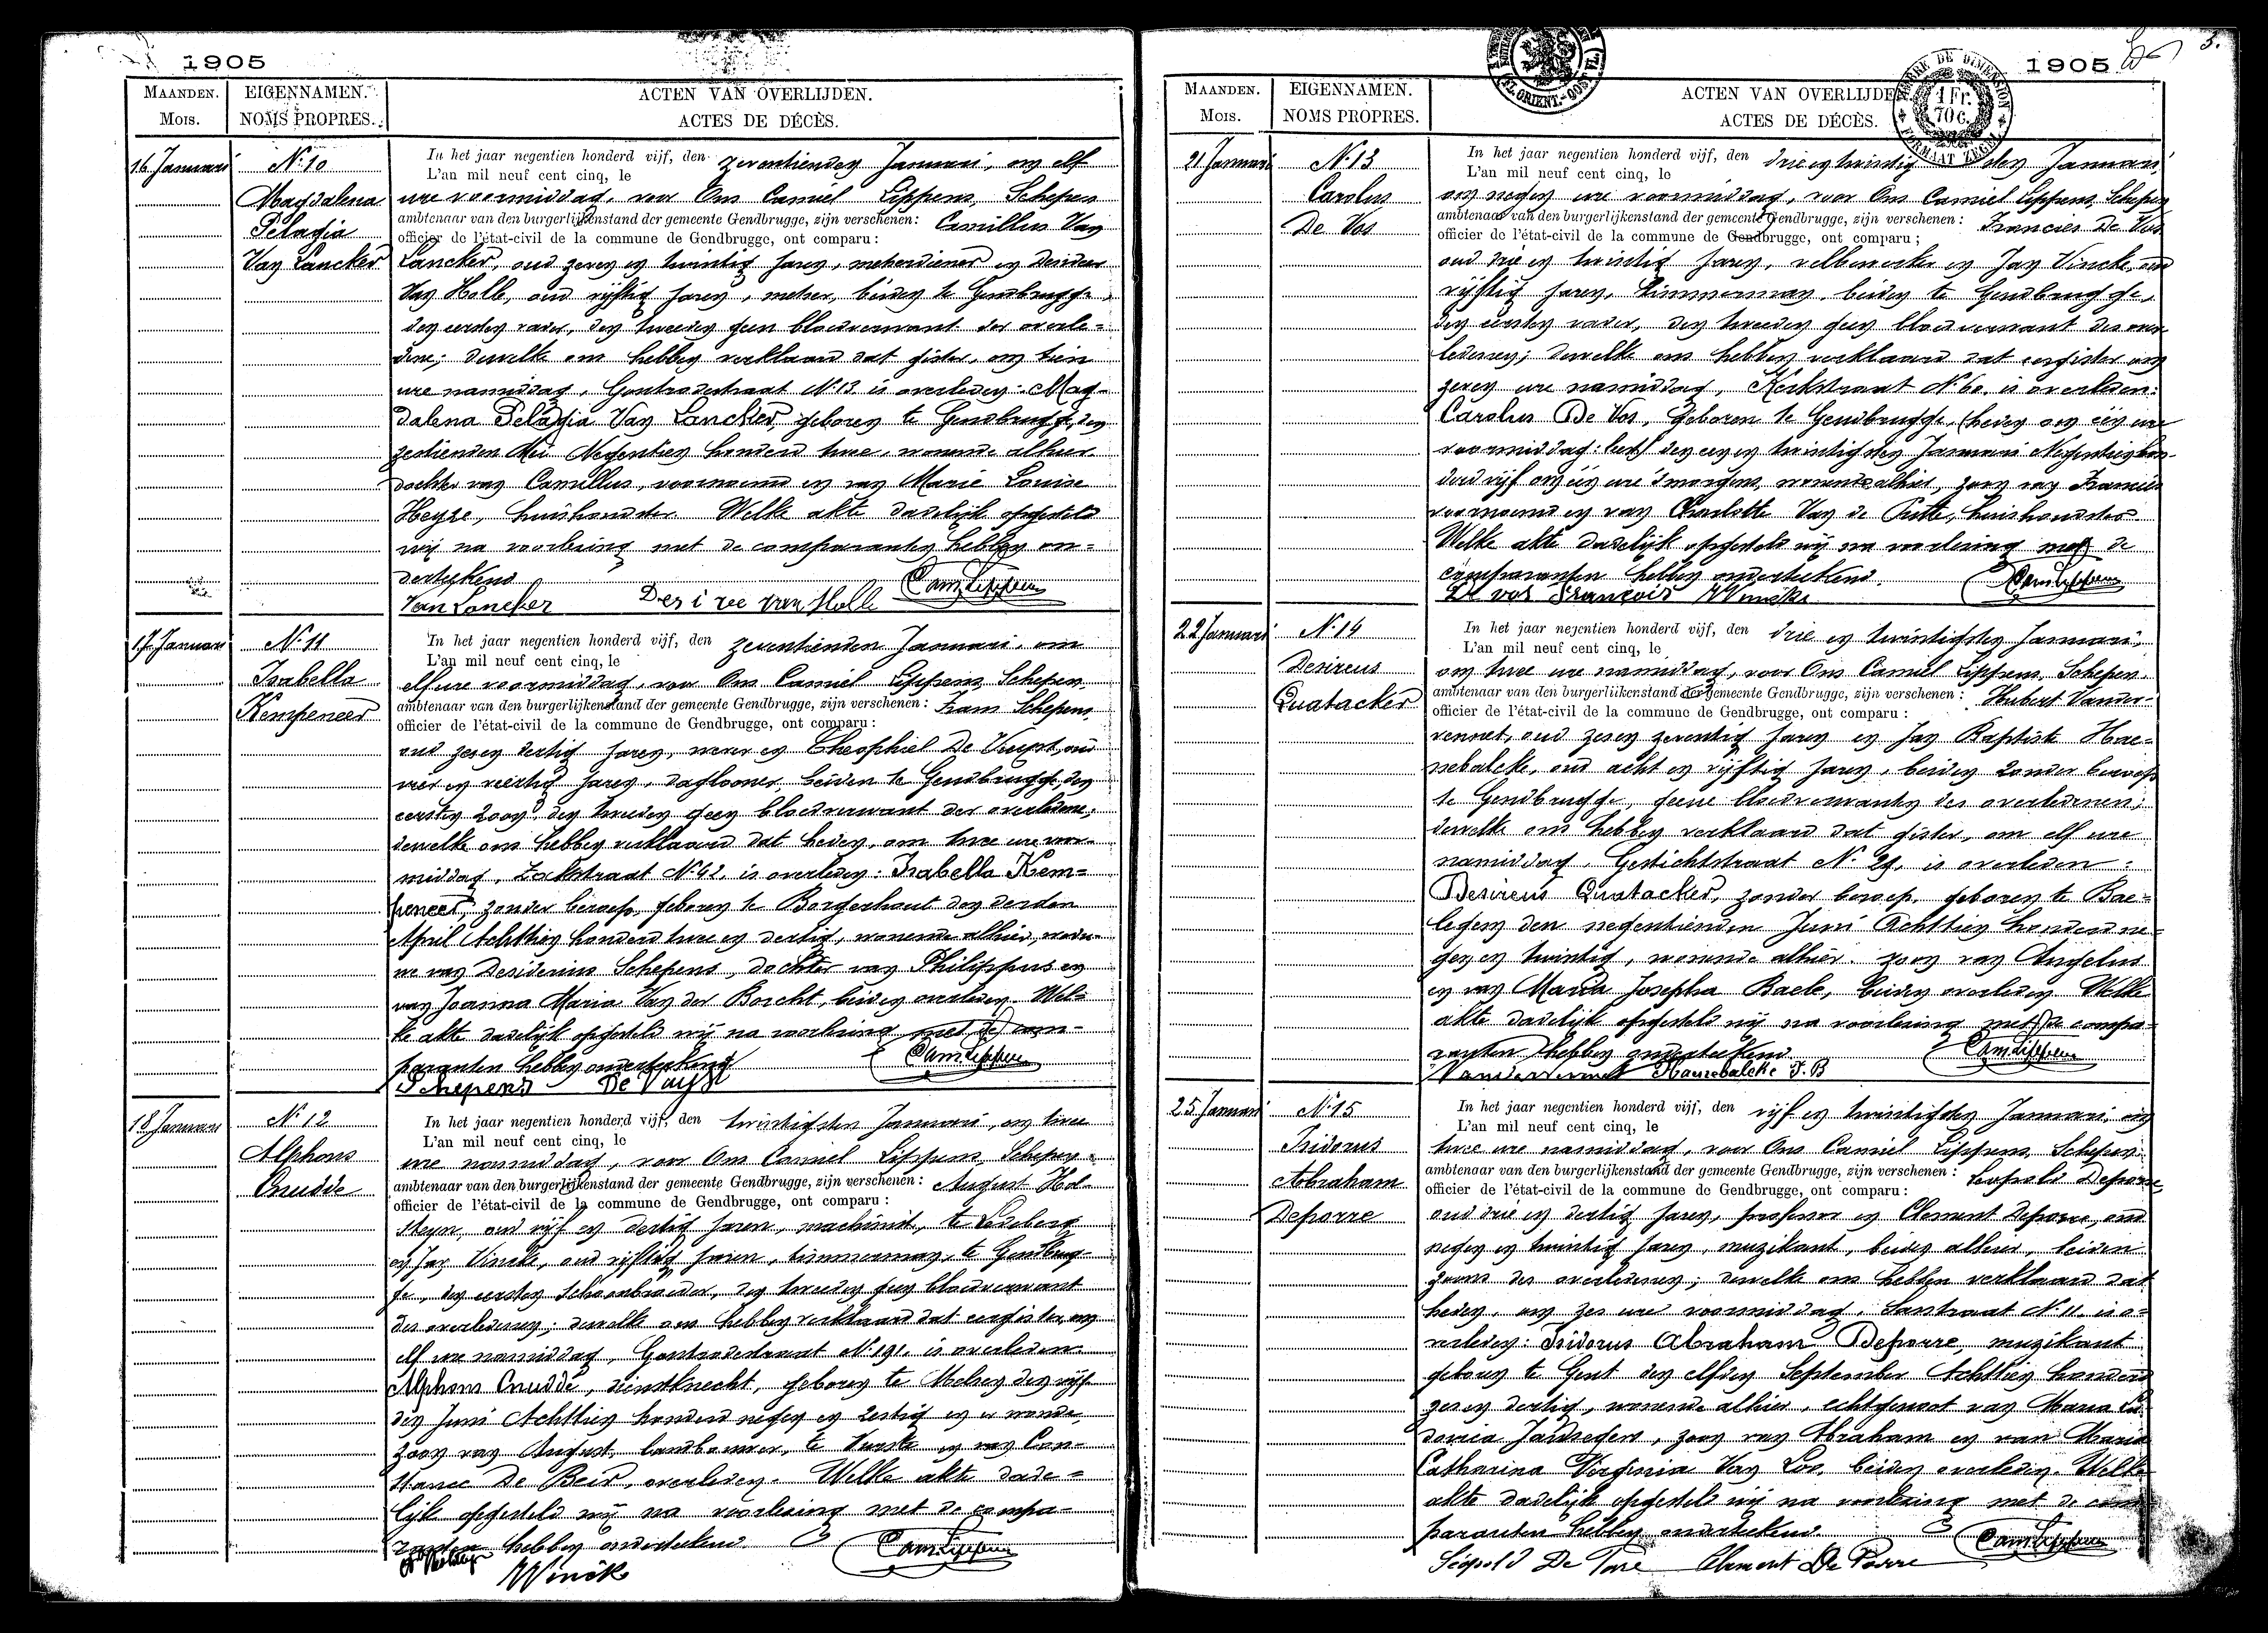 1905
MAANDEN.
Mois.
EIGENNAMEN.
NOMS PROPRES.
ACTEN VAN OVERLIJDEN.
ACTES DE DÉCÈS.
16 Januari
N: 10
Magdalena
Pelagia
Van Lancker
In het jaar negentien honderd vijf, den zeventienden Januari, om elf
L'an mil neuf cent cinq, le
ure voormiddag, voor Ons Camiel Lippens, Schepen
ambtenaar van den burgerlijkenstand der gemeente Gendbrugge, zijn verschenen: Camillus Van
officier de l'état-civil de la commune de Gendbrugge, ont comparu:
Lancker, oud zeven en twintig jaren, metserdiener en Desideer
Van Holle, oud vijftig jaren, metser, beiden te Gendbrugge,
den eersten vader, den tweeden geen bloedverwant der overle-
dene; dewelke ons hebben verklaard dat gister, om tien
ure namiddag, Gontrodestraat N: 13 is overleden: Mag-
dalena Pelagia Van Lancker, geboren te Gendbrugge, den
zestienden Mei Negentien honderd twee, wonende alhier
dochter van Camillus, voornoemd en van Marie Louise
Heyse, huishoudster. Welke akte dadelijk opgesteld
wij na voorlezing met de comparanten hebben on-
derteekend
Van Lancker Desiree van Holle Cam Lippens
17 Januari
N: 11
Isabella
Kempeneer
In het jaar negentien honderd vijf, den zeventienden Januari, om
L'an mil neuf cent cinq, le
elf ure voormiddag, voor Ons Camiel Lippens, Schepen
ambtenaar van den burgerlijkenstand der gemeente Gendbrugge, zijn verschenen: Frans Schepens,
officier de l'état-civil de la commune de Gendbrugge, ont comparu:
oud zesen dertig jaren, wever en Theophiel De Vuyst, oud
vier en veertig jaren, daglooner, beiden te Gendbrugge, den
eersten zoon, den tweeden geen bloedverwant der overledene;
dewelke ons hebben verklaard dat heden, om twee ure voor-
middag, Zakstraat N: 42, is overleden: Isabella Kem-
peneer, zonder beroep, geboren te Borgerhout den derden
April Achttien honderd twee en dertig, wonende alhier, wedu-
we van Desiderius Schepens, dochter van Philippus en
van Joanna Maria Van der Borcht, beiden overleden. Wel-
ke akte dadelijk opgesteld wij na voorlezing met de com-
paranten hebben onderteekend
Schepens De Vuyst Cam Lippens
18 Januari
N: 12
Alphons
Cnudde
In het jaar negentien honderd vijf, den twintigsten Januari, om twee
L'an mil neuf cent cinq, le
ure namiddag, voor Ons Camiel Lippens, Schepen
ambtenaar van den burgerlijkenstand der gemeente Gendbrugge, zijn verschenen: August Hol-
officier de l'état-civil de la commune de Gendbrugge, ont comparu:
steyn, oud vijf en dertig jaren, machinist, te Ledeberg
en Jan Vincke, oud vijftig jaren, timmerman, te Gendbrug-
ge, den eersten schoonbroeder, den tweeden geen bloedverwant
des overledenen; dewelke ons hebben verklaard dat eergister, om
elf ure namiddag, Gontrodestraat N: 191 is overleden
Alphons Cnudde, dienstknecht, geboren te Melsen den vijf-
den Juni Achttien honderd negen en zestig en er wonende,
zoon van August, landbouwer, te Vurste en van Con-
stance De Beir, overleden. Welke akte dade-
lijk opgesteld wij na voorlezing met de compa-
ranten hebben onderteekend
Vincke Cam Lippens
1905
3.
TIMBRE DE DIMENSION
1 Fr.
70 c.
FORMAAT ZEGEL
MAANDEN.
Mois.
EIGENNAMEN.
NOMS PROPRES.
ACTEN VAN OVERLIJDE
ACTES DE DÉCÈS.
21 Januari
N: 13
Carolus
De Vos
In het jaar negentien honderd vijf, den drie en twintigsten Januari,
L'an mil neuf cent cinq, le
om negen ure voormiddag, voor Ons Camiel Lippens, Schepen
ambtenaar van den burgerlijkenstand der gemeente Gendbrugge, zijn verschenen: Francies De Vos
officier de l'état-civil de la commune de Gendbrugge, ont comparu;
oud drie en twintig jaren, velbewerker en Jan Vincke, oud
vijftig jaren, timmerman, beiden te Gendbrugge,
den eersten vader, den tweeden geen bloedverwant des over-
ledenen; dewelke ons hebben verklaard dat eergister om
zeven ure namiddag, Kerkstraat N: 60 is overleden:
Carolus De Vos, geboren te Gendbrugge, (heden om één ure
voormiddag: lees) den een en twintigsten Januari Negentien hon-
derd vijf om één ure 's morgens, wonende alhier, zoon van Francies
voornoemd en van Charlotte Van de Putte, huishoudster.
Welke akte dadelijk opgesteld wij na voorlezing met de
comparanten hebben onderteekend.
De vos François Vincke Cam Lippens
22 Januari
N: 14
Desireus
Quatacker
In het jaar negentien honderd vijf, den drie en twintigsten Januari,
L'an mil neuf cent cinq, le
om twee ure namiddag, voor Ons Camiel Lippens, Schepen,
ambtenaar van den burgerlijkenstand der gemeente Gendbrugge, zijn verschenen: Hubert Vander-
officier de l'état-civil de la commune de Gendbrugge, ont comparu:
vennet, oud zesen zeventig jaren en Jan Baptist Hae-
nebalcke, oud acht en vijftig jaren, beiden zonder beroep
te Gendbrugge, geene bloedverwanten des overledenen;
dewelke ons hebben verklaard dat gister, om elf ure
namiddag, Gestichtstraat N: 29, is overleden:
Desireus Quatacker, zonder beroep, geboren te Bae-
legem den negentienden Juni Achttien honderd ne-
gen en twintig, wonende alhier, zoon van Angelus
en van Maria Josepha Baele, beiden overleden. Welke
akte dadelijk opgesteld wij na voorlezing met de compa-
ranten hebben onderteekend
Vandervennet Haenebalcke J. B Cam Lippens
25 Januari
N: 15
Isidorus
Abraham
Deporre
In het jaar negentien honderd vijf, den vijf en twintigsten Januari, om
L'an mil neuf cent cinq, le
twee ure namiddag, voor Ons Camiel Lippens, Schepen
ambtenaar van den burgerlijkenstand der gemeente Gendbrugge, zijn verschenen: Leopold Deporre,
officier de l'état-civil de la commune de Gendbrugge, ont comparu:
oud drie en dertig jaren, professor en Clement Deporre, oud
negen en twintig jaren, muzikant, beiden alhier, beiden
zoons des overledenen; dewelke ons hebben verklaard dat
heden, om zes ure voormiddag, N: 11 is o-
verleden: Isidorus Abraham Deporre, muzikant
geboren te Gent den elfden September Achttien honderd
zesen dertig, wonende alhier, echtgenoot van Maria Lu-
dovica Janssegers, zoon van Abraham en van Maria
Catharina Virginia Van Loo, beiden overleden. Welke
akte dadelijk opgesteld wij na voorlezing met de com-
paranten hebben onderteekend
Léopold De Porre Clement De Porre Cam Lippens